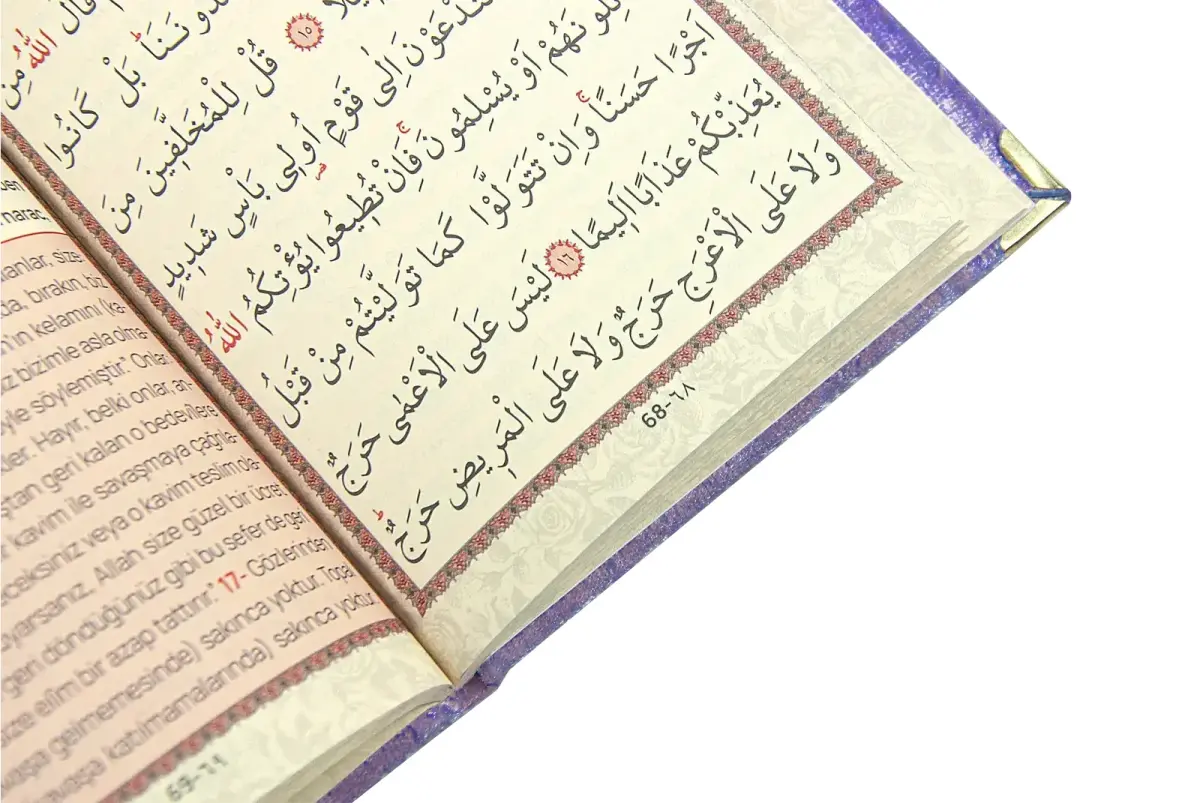 قَالَ اللّٰهُ مِنْ
بَلْ كَانُوا
١٥ قُلْ لِلْمُخَلَّفٖينَ مِنَ
اِلٰى قَوْمٍ اُولٖى بَاْسٍ شَدٖيدٍ
اَوْ يُسْلِمُونَ فَاِنْ تُطٖيعُوا يُؤْتِكُمُ اللّٰهُ
اَجْرًا حَسَنًا وَاِنْ تَتَوَلَّوْا كَمَا تَوَلَّيْتُمْ مِنْ قَبْلُ
يُعَذِّبْكُمْ عَذَابًا اَلٖيمًا ١٦ لَيْسَ عَلَى الْاَعْمٰى حَرَجٌ
وَلَا عَلَى الْاَعْرَجِ حَرَجٌ وَلَا عَلَى الْمَرٖيضِ حَرَجٌ
68-٦٨
size
bırakın, biz
kelamını (ka-
bizimle asla olma-
söylemiştir." Onlar,
Hayır, belki onlar, an-
geri kalan o bedevilere
kavim ile savaşmaya çağrıla-
veya o kavim teslim ola-
Allah size güzel bir ücret
geri döndüğünüz gibi bu sefer de geri
size elîm bir azap tattırır." 17- Gözlerinden
gelmemesinde) sakınca yoktur. Topal
katılmamalarında) sakınca yoktur.
69-٦٩